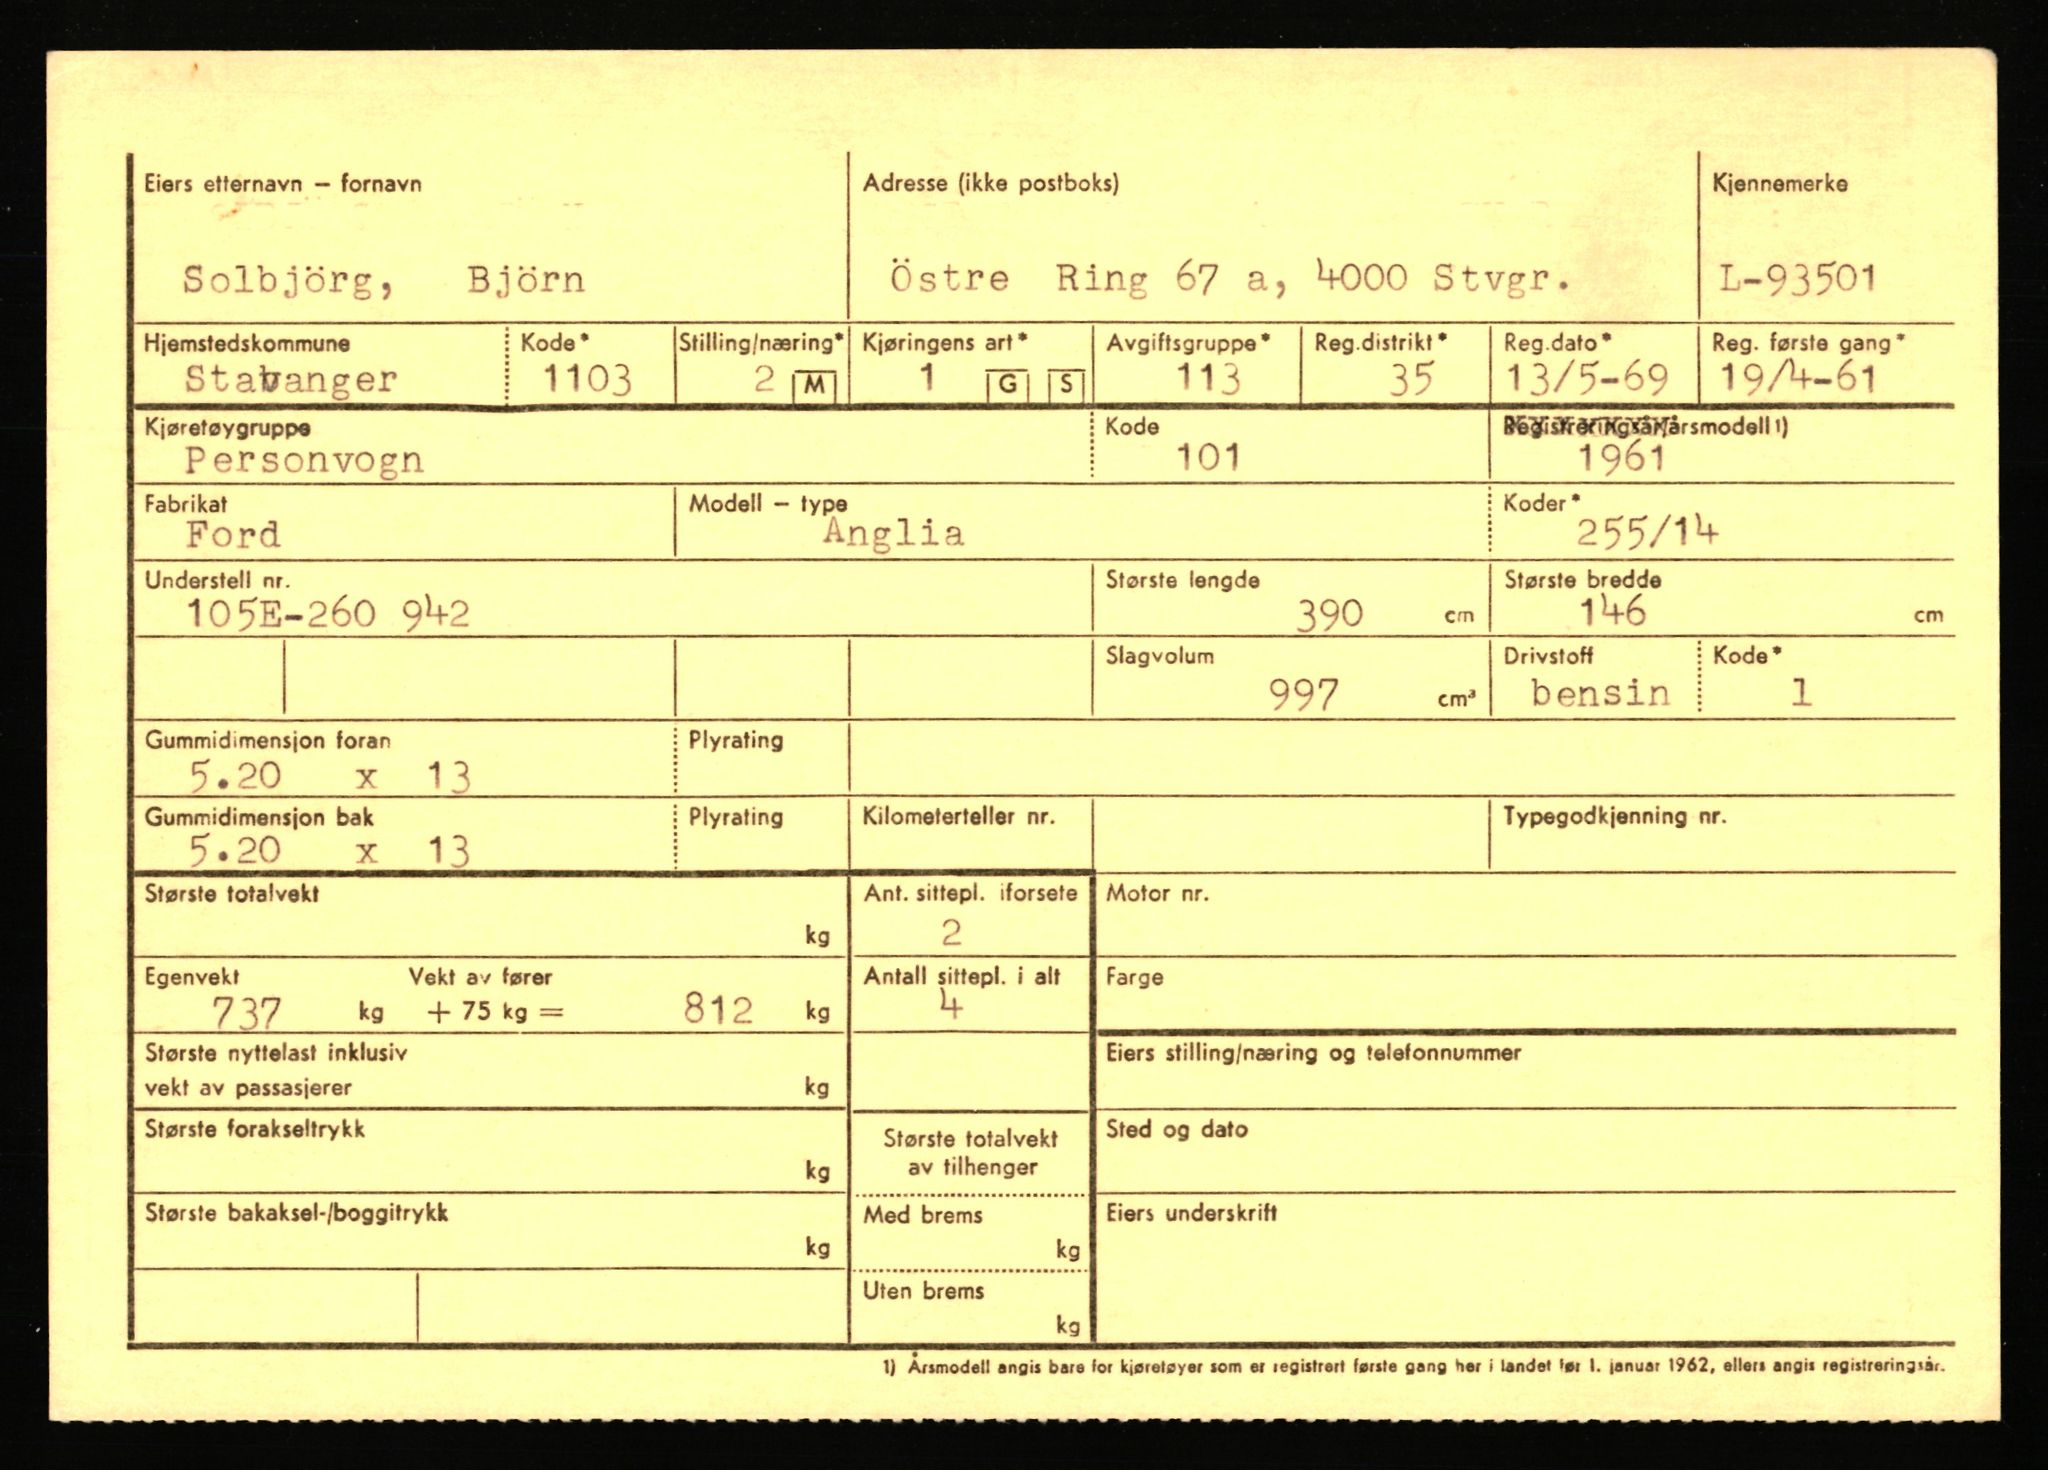 Eiers etternavn – fornavn Adresse (ikke postboks) Kjennemerke
Solbjörg, Björn Östre Ring 67 a, 4000 Stvgr. L-93501
Hjemstedskommune Kode* Stilling/næring* Kjøringens art* Avgiftsgruppe* Reg.distrikt* Reg.dato* Reg. første gang*
Stavanger 1103 2 M 1 G S 113 35 13/5-69 19/4-61
Kjøretøygruppe Kode Registreringsår/årsmodell 1)
Personvogn 101 1961
Fabrikat Modell – type Koder*
Ford Anglia 255/14
Understell nr. Største lengde Største bredde
105E-260 942 390 cm 146 cm
Slagvolum Drivstoff Kode*
997 cm³ bensin 1
Gummidimensjon foran Plyrating
5.20 x 13
Gummidimensjon bak Plyrating Kilometerteller nr. Typegodkjenning nr.
5.20 x 13
Største totalvekt Ant. sittepl. iforsete Motor nr.
kg 2
Egenvekt Vekt av fører Antall sittepl. i alt Farge
737 kg + 75 kg = 812 kg 4
Største nyttelast inklusiv Eiers stilling/næring og telefonnummer
vekt av passasjerer kg
Største forakseltrykk Største totalvekt Sted og dato
kg av tilhenger
Største bakaksel-/boggitrykk Med brems Eiers underskrift
kg kg
Uten brems
kg
1) Årsmodell angis bare for kjøretøyer som er registrert første gang her i landet før 1. januar 1962, ellers angis registreringsår.